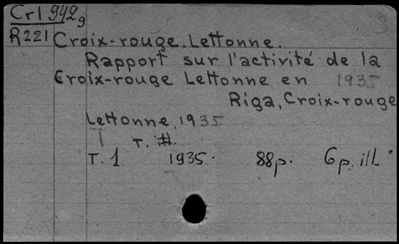 Cr1 942g
3
R221 Croix-rouge. Lettonne.
Rapport sur l'activité de la
Croix-rouge Lettonne en 1935
Riga, Croix-rouge
Lettonne, 1935
T. #.
T. 1 1935. 88p. 6p. ill.